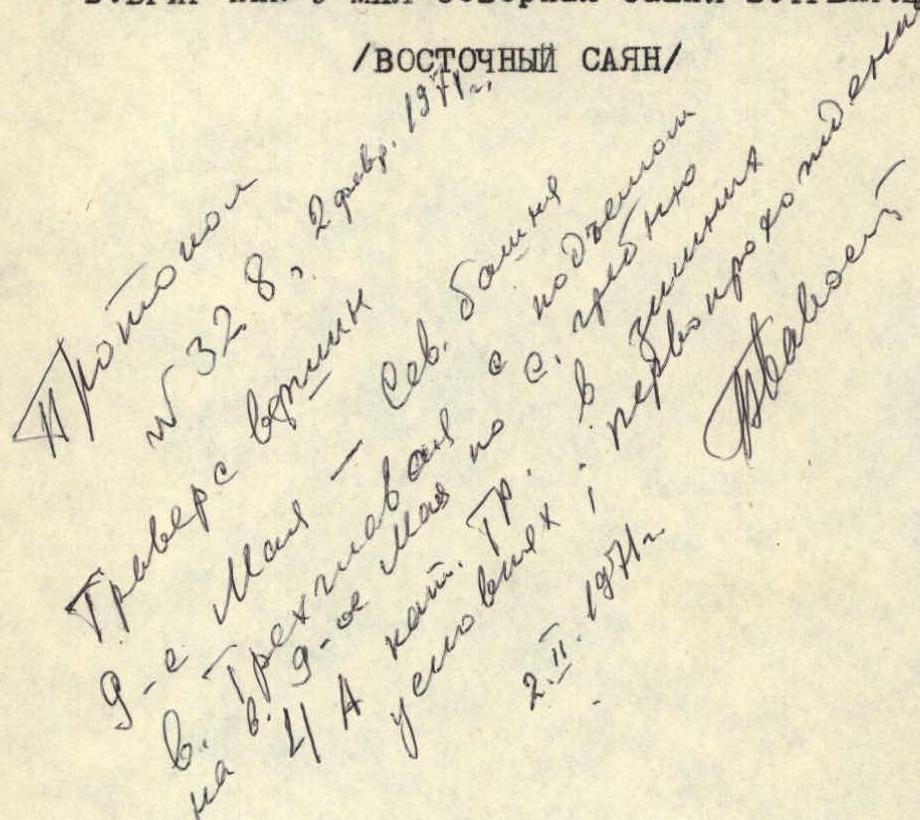 /ВОСТОЧНЫЙ САЯН/
Протокол
№ 328, 2 февр. 1971 г.
Траверс вершин
9-е Мая – Сев. башня
в. Трехглавая с подъемом
на в. 9-ое Мая по С. гребню
4А кат. тр. в зимних
условиях; первопрохождение
2.II.1971г.